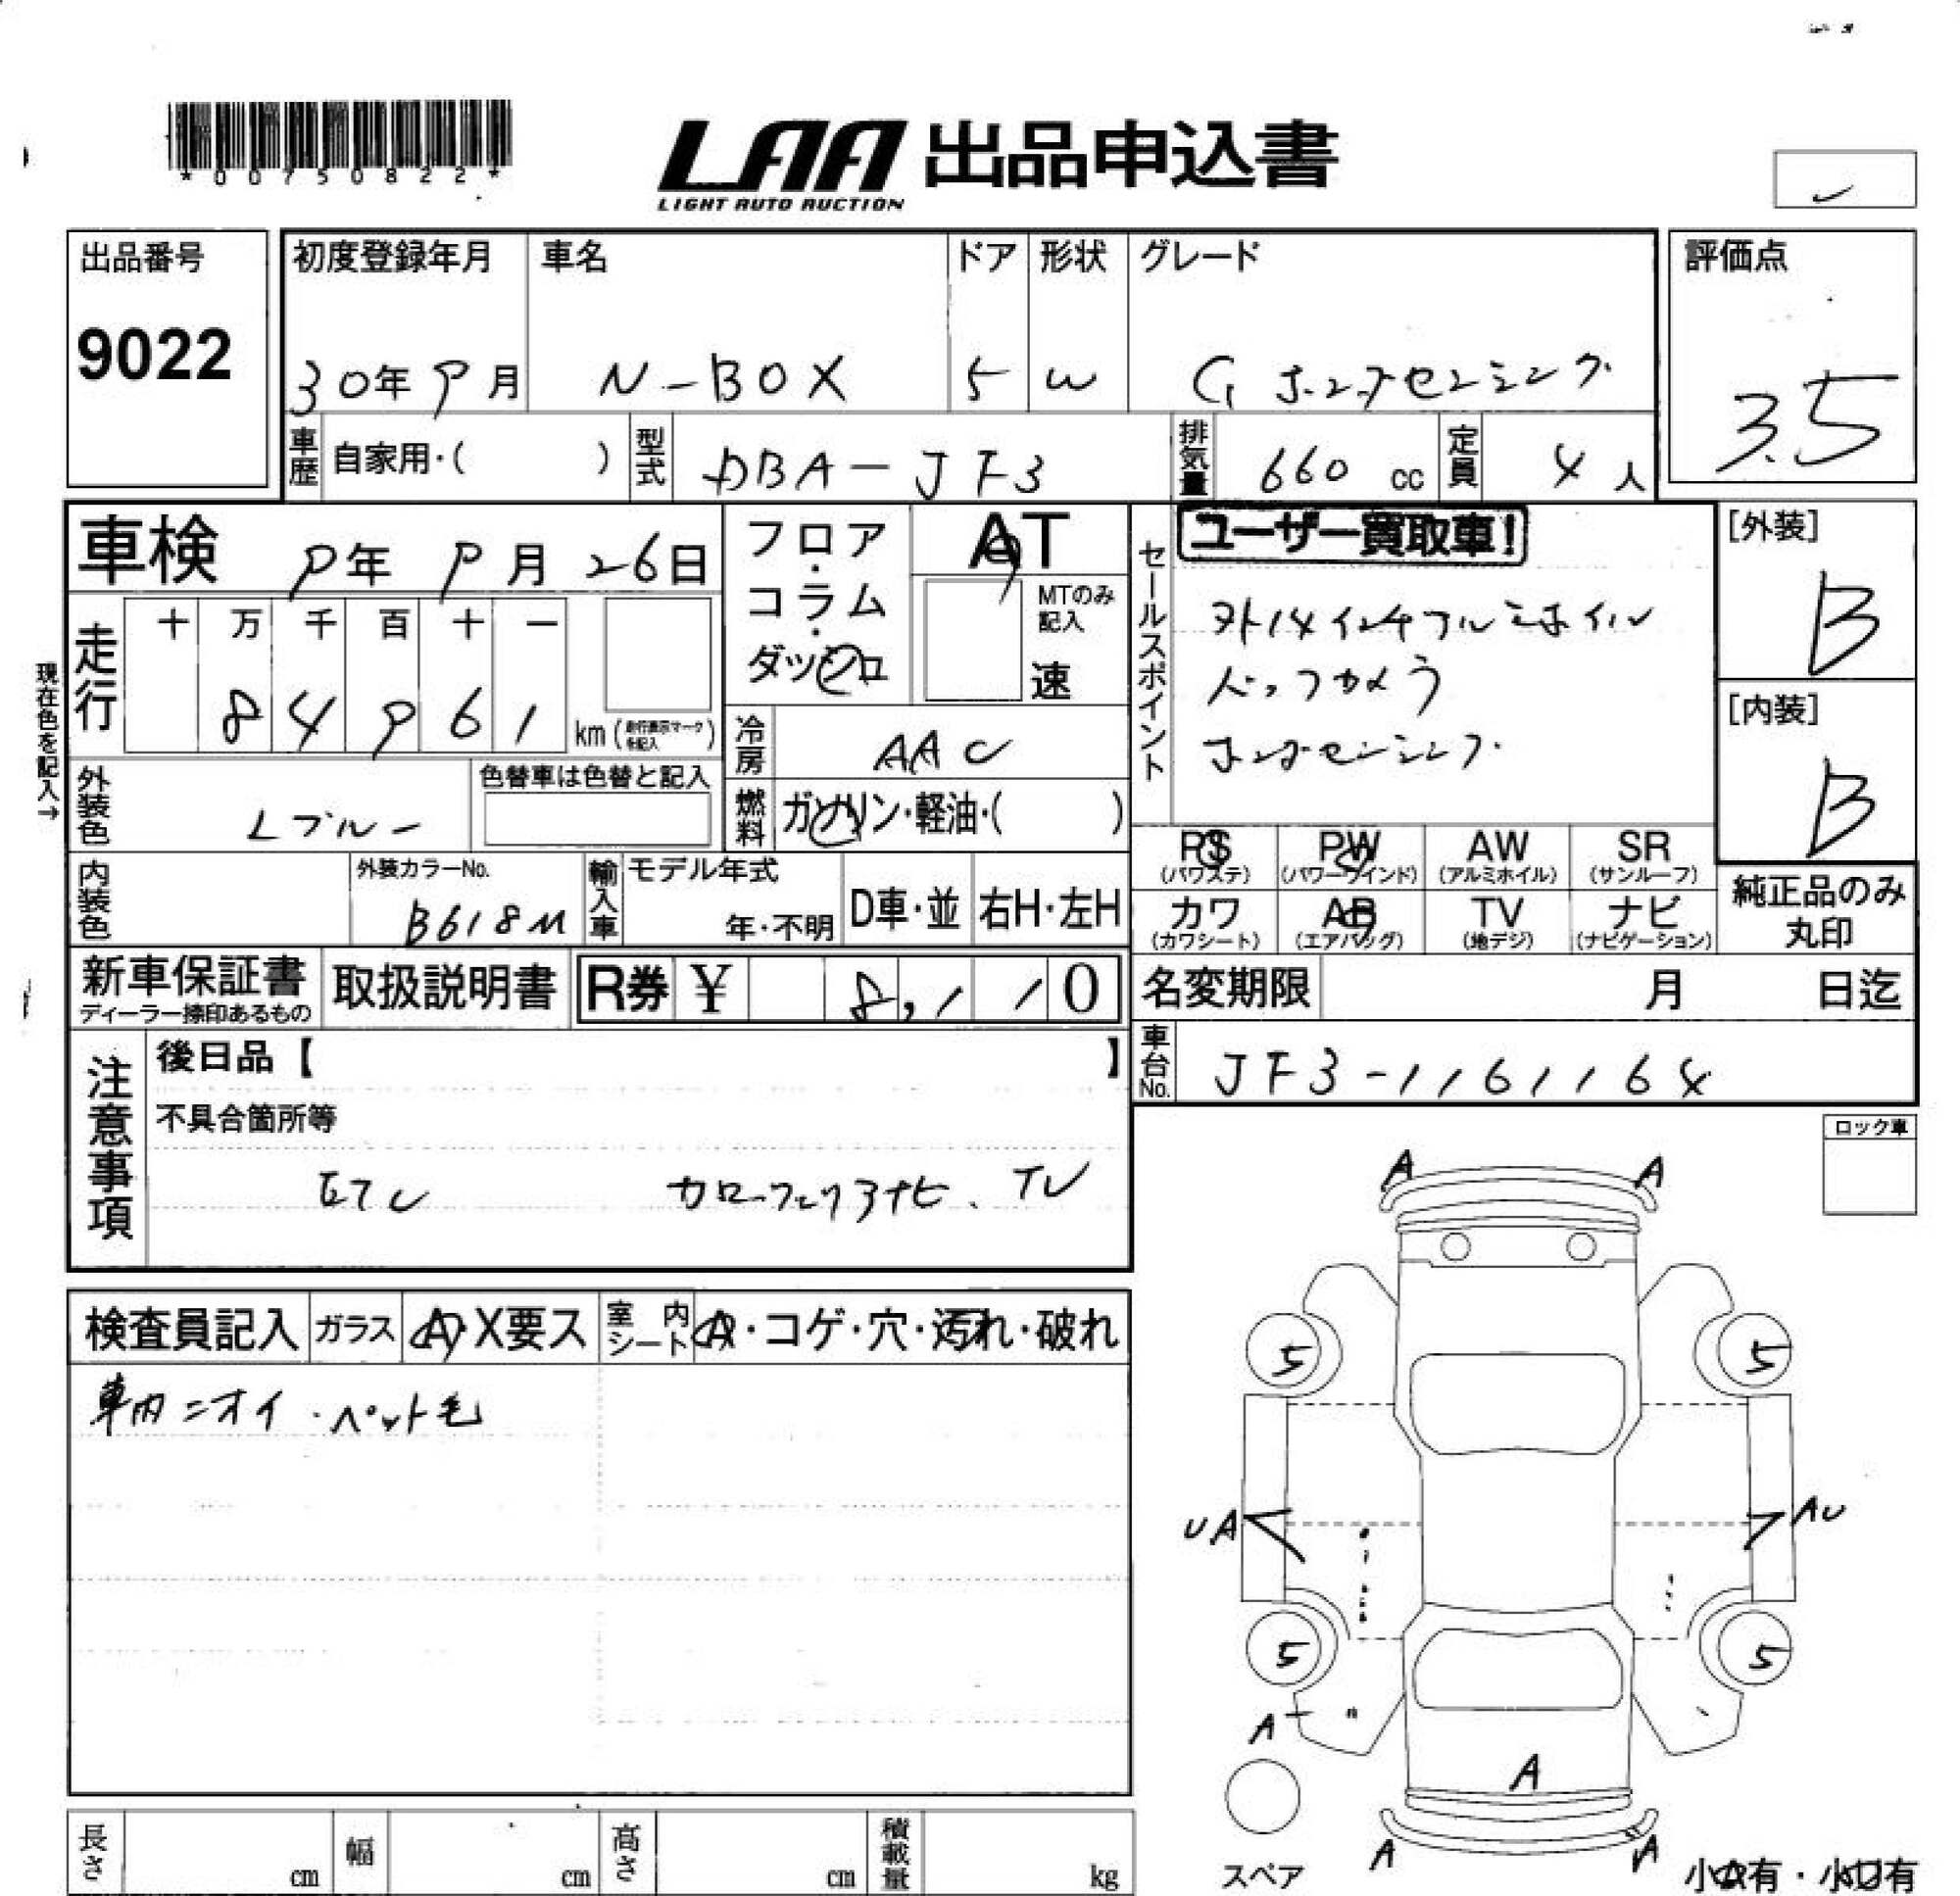 *00750822*
LAA 出品申込書
LIGHT AUTO AUCTION
出品番号
9022
初度登録年月 車名 ドア 形状 グレード
30年9月 N-BOX 5 W G ホンダセンシング
評価点
3.5
車歴 自家用・( ) 型式 DBA-JF3 排気量 660 cc 定員 4人
車検 9年9月26日
フロア・コラム・ダッシュ
AT
MTのみ記入
速
セールスポイント
ユーザー買取車!
外14インチアルミホイル
バックカメラ
ホンダセンシング
[外装]
B
[内装]
B
現在色を記入→
走行 十 万 千 百 十 一
84961 km (走行表示マークを記入)
冷房 AAC
外装色 Lブルー 色替車は色替と記入
燃料 ガソリン・軽油・( )
PS (パワステ) PW (パワーウインド) AW (アルミホイル) SR (サンルーフ)
カワ (カワシート) AB (エアバッグ) TV (地デジ) ナビ (ナビゲーション)
純正品のみ丸印
内装色 外装カラーNo. B618M 輸入車 モデル年式 年・不明 D車・並 右H・左H
新車保証書 ディーラー捺印あるもの 取扱説明書 R券 ¥ 8,110
名変期限 月 日迄
車台No. JF3-1161164
注意事項
後日品【 】
不具合箇所等
ETC カロッツェリアナビ、TV
ロック車
A A
検査員記入 ガラス A・X要ス 室内シート A・コゲ・穴・汚れ・破れ
車内ニオイ・ペット毛
5 5
UA AU
5 5
A
A
A A
スペア
小A有・小U有
長さ cm 幅 cm 高さ cm 積載量 kg